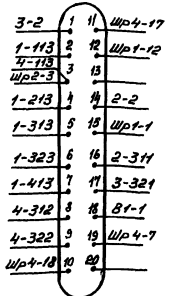 3-2 1 11 Шр4-17
1-113 2 12 Шр1-12
4-113
Шр2-3 3 13
1-213 4 14 2-2
1-313 5 15 Шр1-1
1-323 6 16 2-311
1-413 7 17 3-321
4-312 8 18 В1-1
4-322 9 19 Шр4-7
Шр4-18 10 20